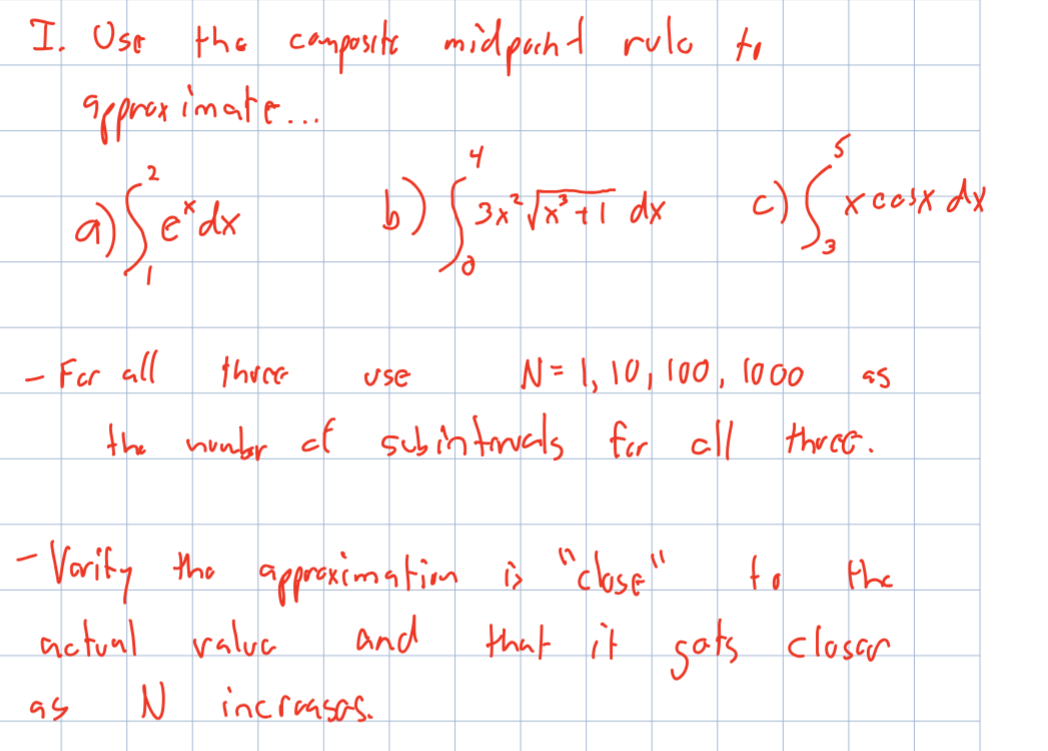 I. Use the composite midpoint rule to
approximate...
a) ∫₁² eˣ dx b) ∫₀⁴ 3x²√(x³+1) dx c) ∫₃⁵ x cosx dx
- For all three use N = 1, 10, 100, 1000 as
the number of subintervals for all three.
- Verify the approximation is "close" to the
actual value and that it gets closer
as N increases.